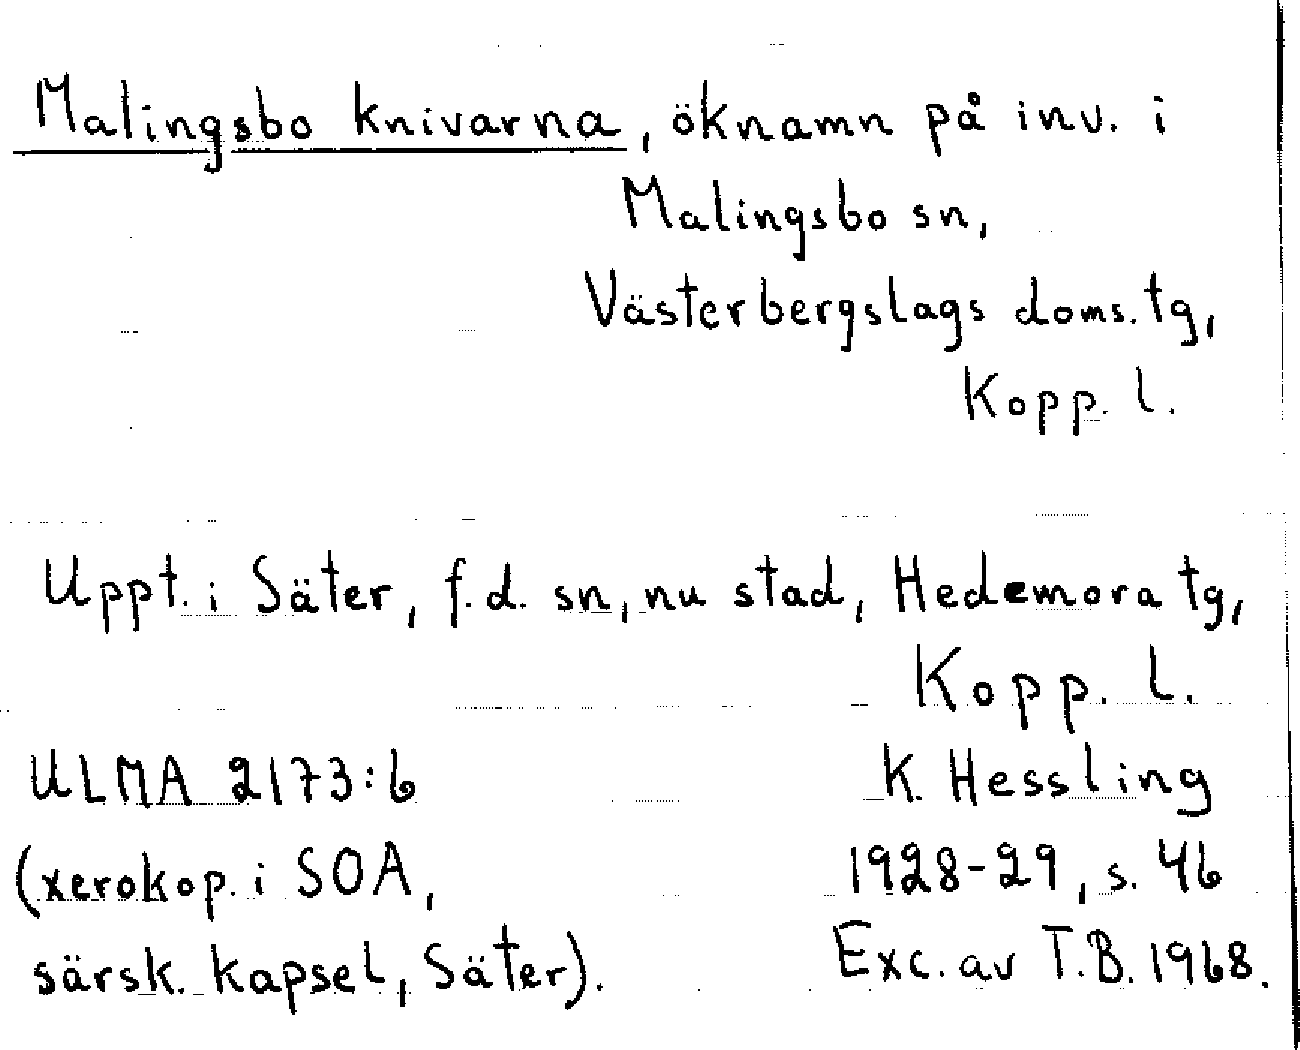 Malingsbo knivarna, öknamn på inv. i
Malingsbo sn,
Västerbergslags doms. tg,
Kopp. l.
Uppt. i Säter, f.d. sn, nu stad, Hedemora tg,
Kopp. l.
ULMA 2173:6
K. Hessling
(xerokop. i SOA,
1928-29, s. 46
särsk. kapsel, Säter).
Exc. av T.B. 1968.